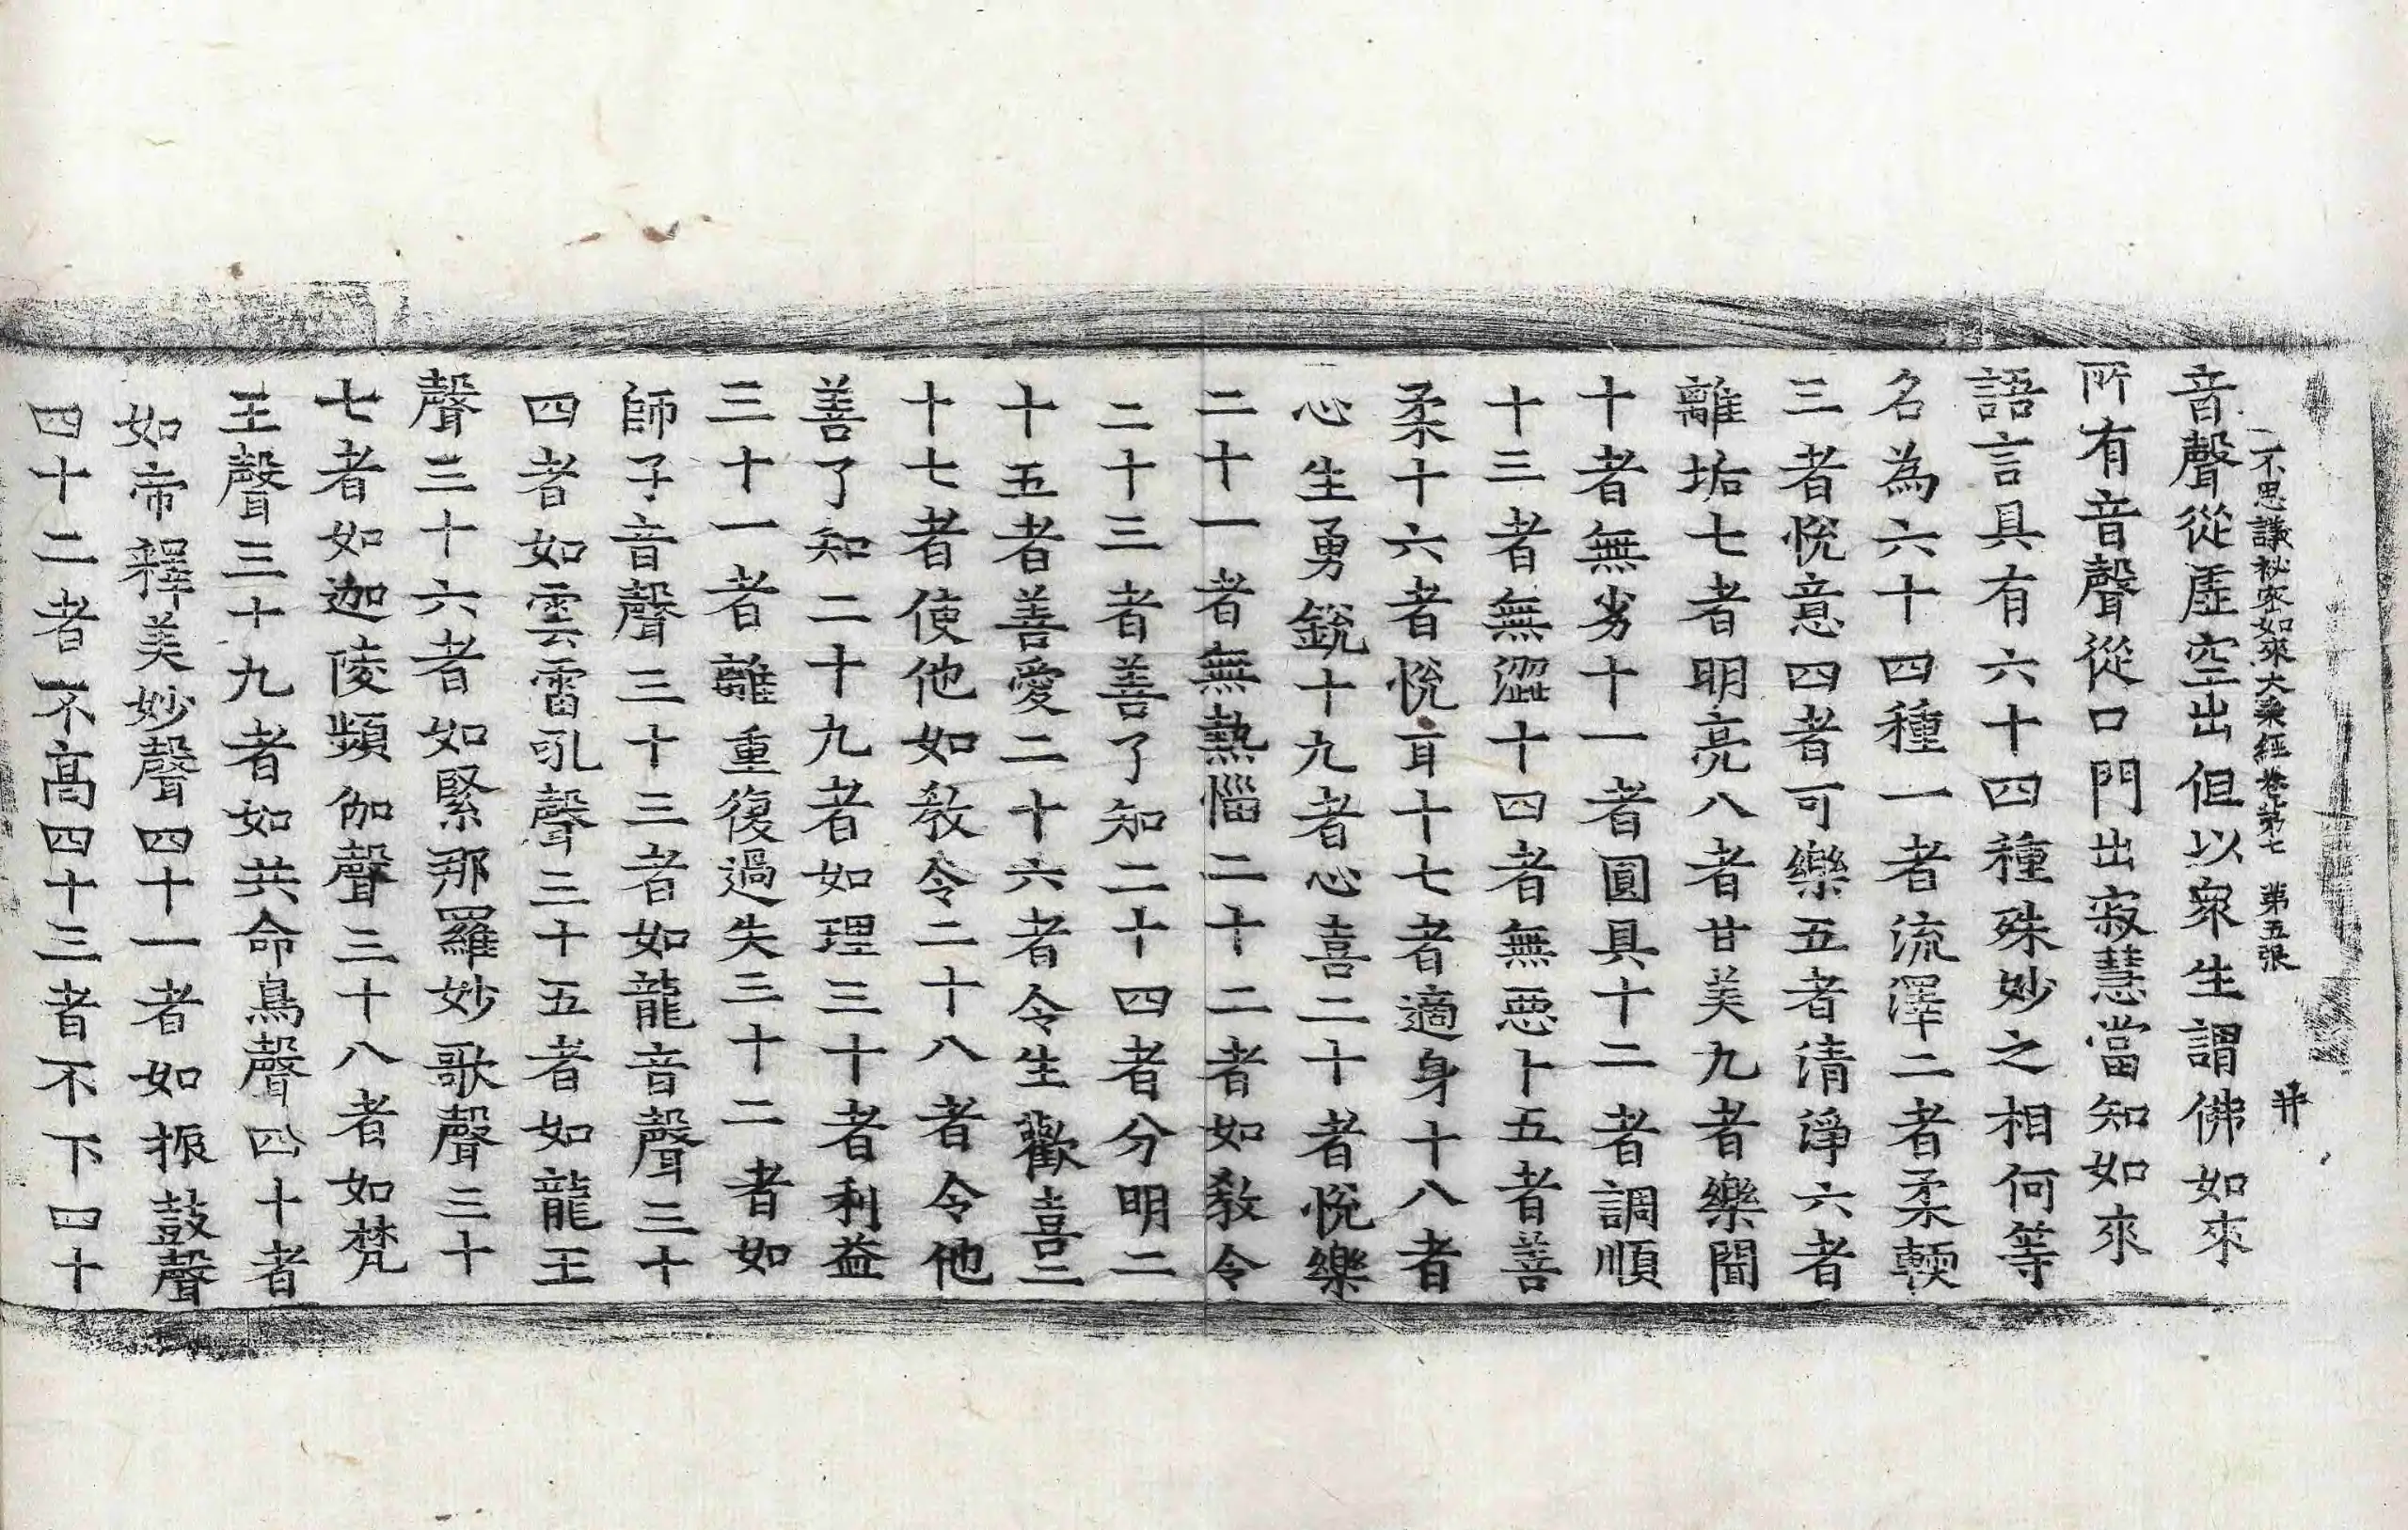 不思議祕密如來大乘經卷第七 第五張 井
音聲從虛空出但以衆生謂佛如來
所有音聲從口門出寂慧當知如來
語言具有六十四種殊妙之相何等
名為六十四種一者流澤二者柔軟
三者悅意四者可樂五者清淨六者
離垢七者明亮八者甘美九者樂聞
十者無劣十一者圓具十二者調順
十三者無澀十四者無惡十五者善
柔十六者悅耳十七者適身十八者
心生勇銳十九者心喜二十者悅樂
二十一者無熱惱二十二者如教令
二十三者善了知二十四者分明二
十五者善愛二十六者令生歡喜二
十七者使他如教令二十八者令他
善了知二十九者如理三十者利益
三十一者離重復過失三十二者如
師子音聲三十三者如龍音聲三十
四者如雲雷吼聲三十五者如龍王
聲三十六者如緊那羅妙歌聲三十
七者如迦陵頻伽聲三十八者如梵
王聲三十九者如共命鳥聲四十者
如帝釋美妙聲四十一者如振鼓聲
四十二者不高四十三者不下四十